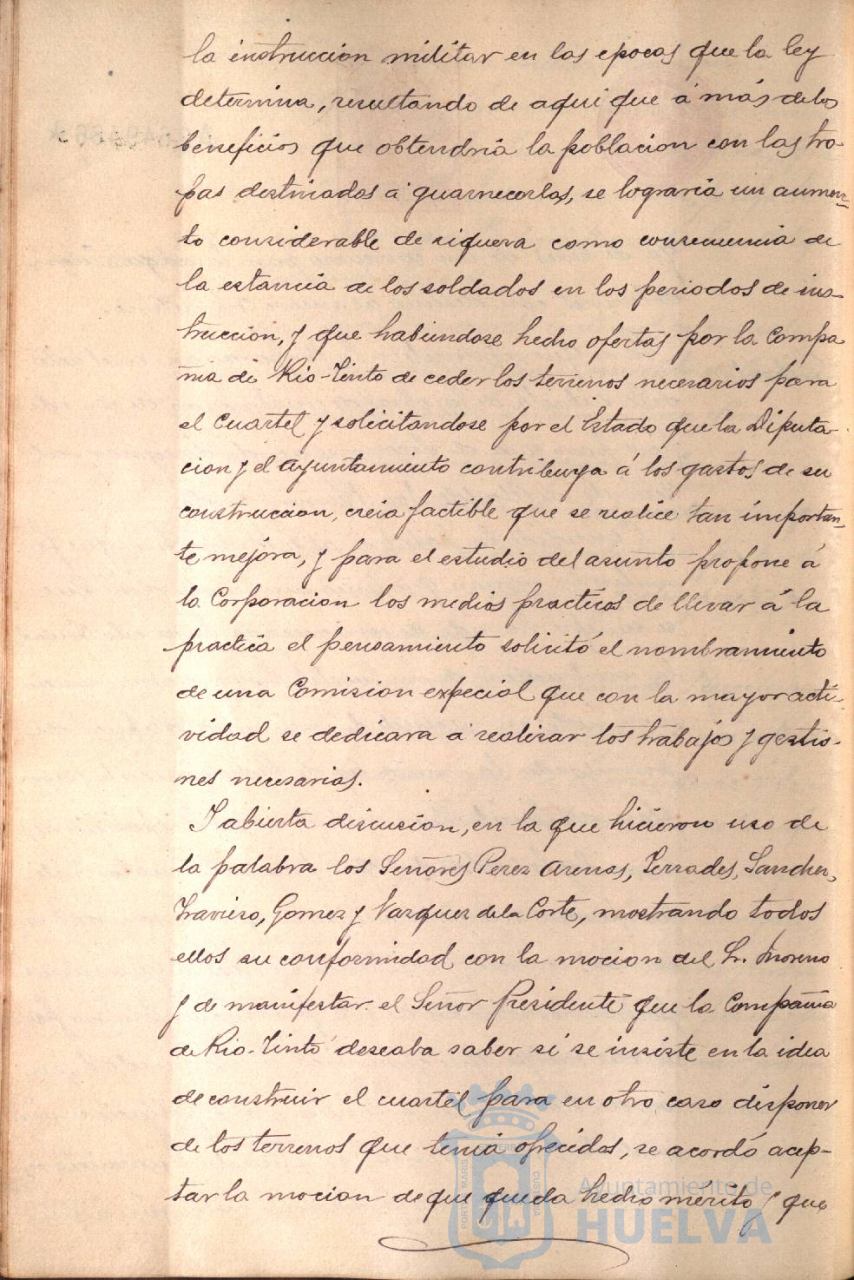 la instruccion militar en las epocas que la ley
determina, resultando de aqui que á más de los
beneficios que obtendria la poblacion con las tro-
pas destinadas á guarnecerlas, se lograria un aumen-
to considerable de riquera como consecuencia de
la estancia de los soldados en los periodos de ins-
truccion, y que habiendose hecho ofertas por la Compa
ñia de Rio-Tinto de ceder los terrenos necesarios para
el Cuartel y solicitandose por el Estado que la Diputa-
cion y el Ayuntamiento contribuya á los gastos de su
construccion, creia factible que se realice tan importan-
te mejora, y para el estudio del asunto propone á
la Corporacion los medios practicos de llevar á la
practica el pensamiento solicitó el nombramiento
de una Comision expecial que con la mayor acti-
vidad se dedicara á realizar los trabajos y gestio-
nes necesarias.
Y abierta discusion, en la que hicieron uso de
la palabra los Señores Perez Arenas, Terrades, Sanchez,
Travieso, Gomez y Vazquez de la Corte, mostrando todos
ellos su conformidad con la mocion del Sr. Moreno
y de manifestar el Señor Presidente que la Compañia
de Rio-Tinto deseaba saber si se insiste en la idea
de construir el cuartel para en otro caso disponer
de los terrenos que tenia ofrecidos, se acordó acep-
tar la mocion de que queda hecho mérito y que
Ayuntamiento de
HUELVA